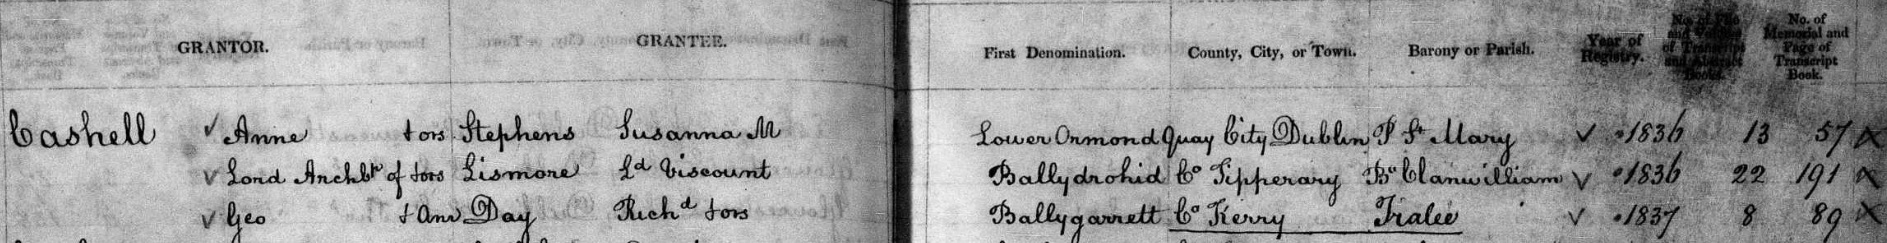 GRANTOR. GRANTEE. First Denomination. County, City, or Town. Barony or Parish. Year of Registry. No. of File and Volume of Transcript and Abstract Books. No. of Memorial and Page of Transcript Book.
Cashell √ Anne & ors Stephens Susanna M Lower Ormond Quay City Dublin P St Mary √ 1836 13 57 X
√ Lord Archbp of & ors Lismore Ld Viscount Ballydrohid Co Tipperary By Clanwilliam √ 1836 22 191 X
√ Geo & anr Day Richd & ors Ballygarrett Co Kerry Tralee √ 1837 8 89 X